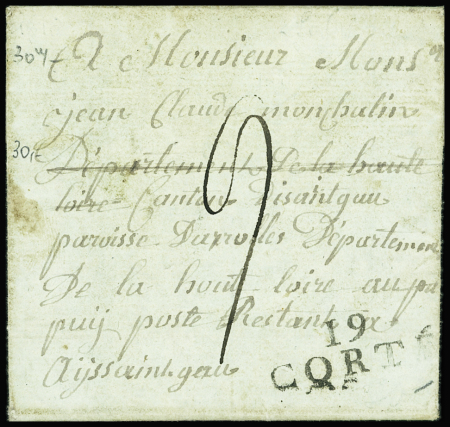 30
A Monsieur Mons
jean Claude monchalin
30
Département De la haute
loire Canton Disantgau
paroisse Darzolles Département
De la hout loire au
puij poste Restant a
Aijssaint gau
9
19
CORTE